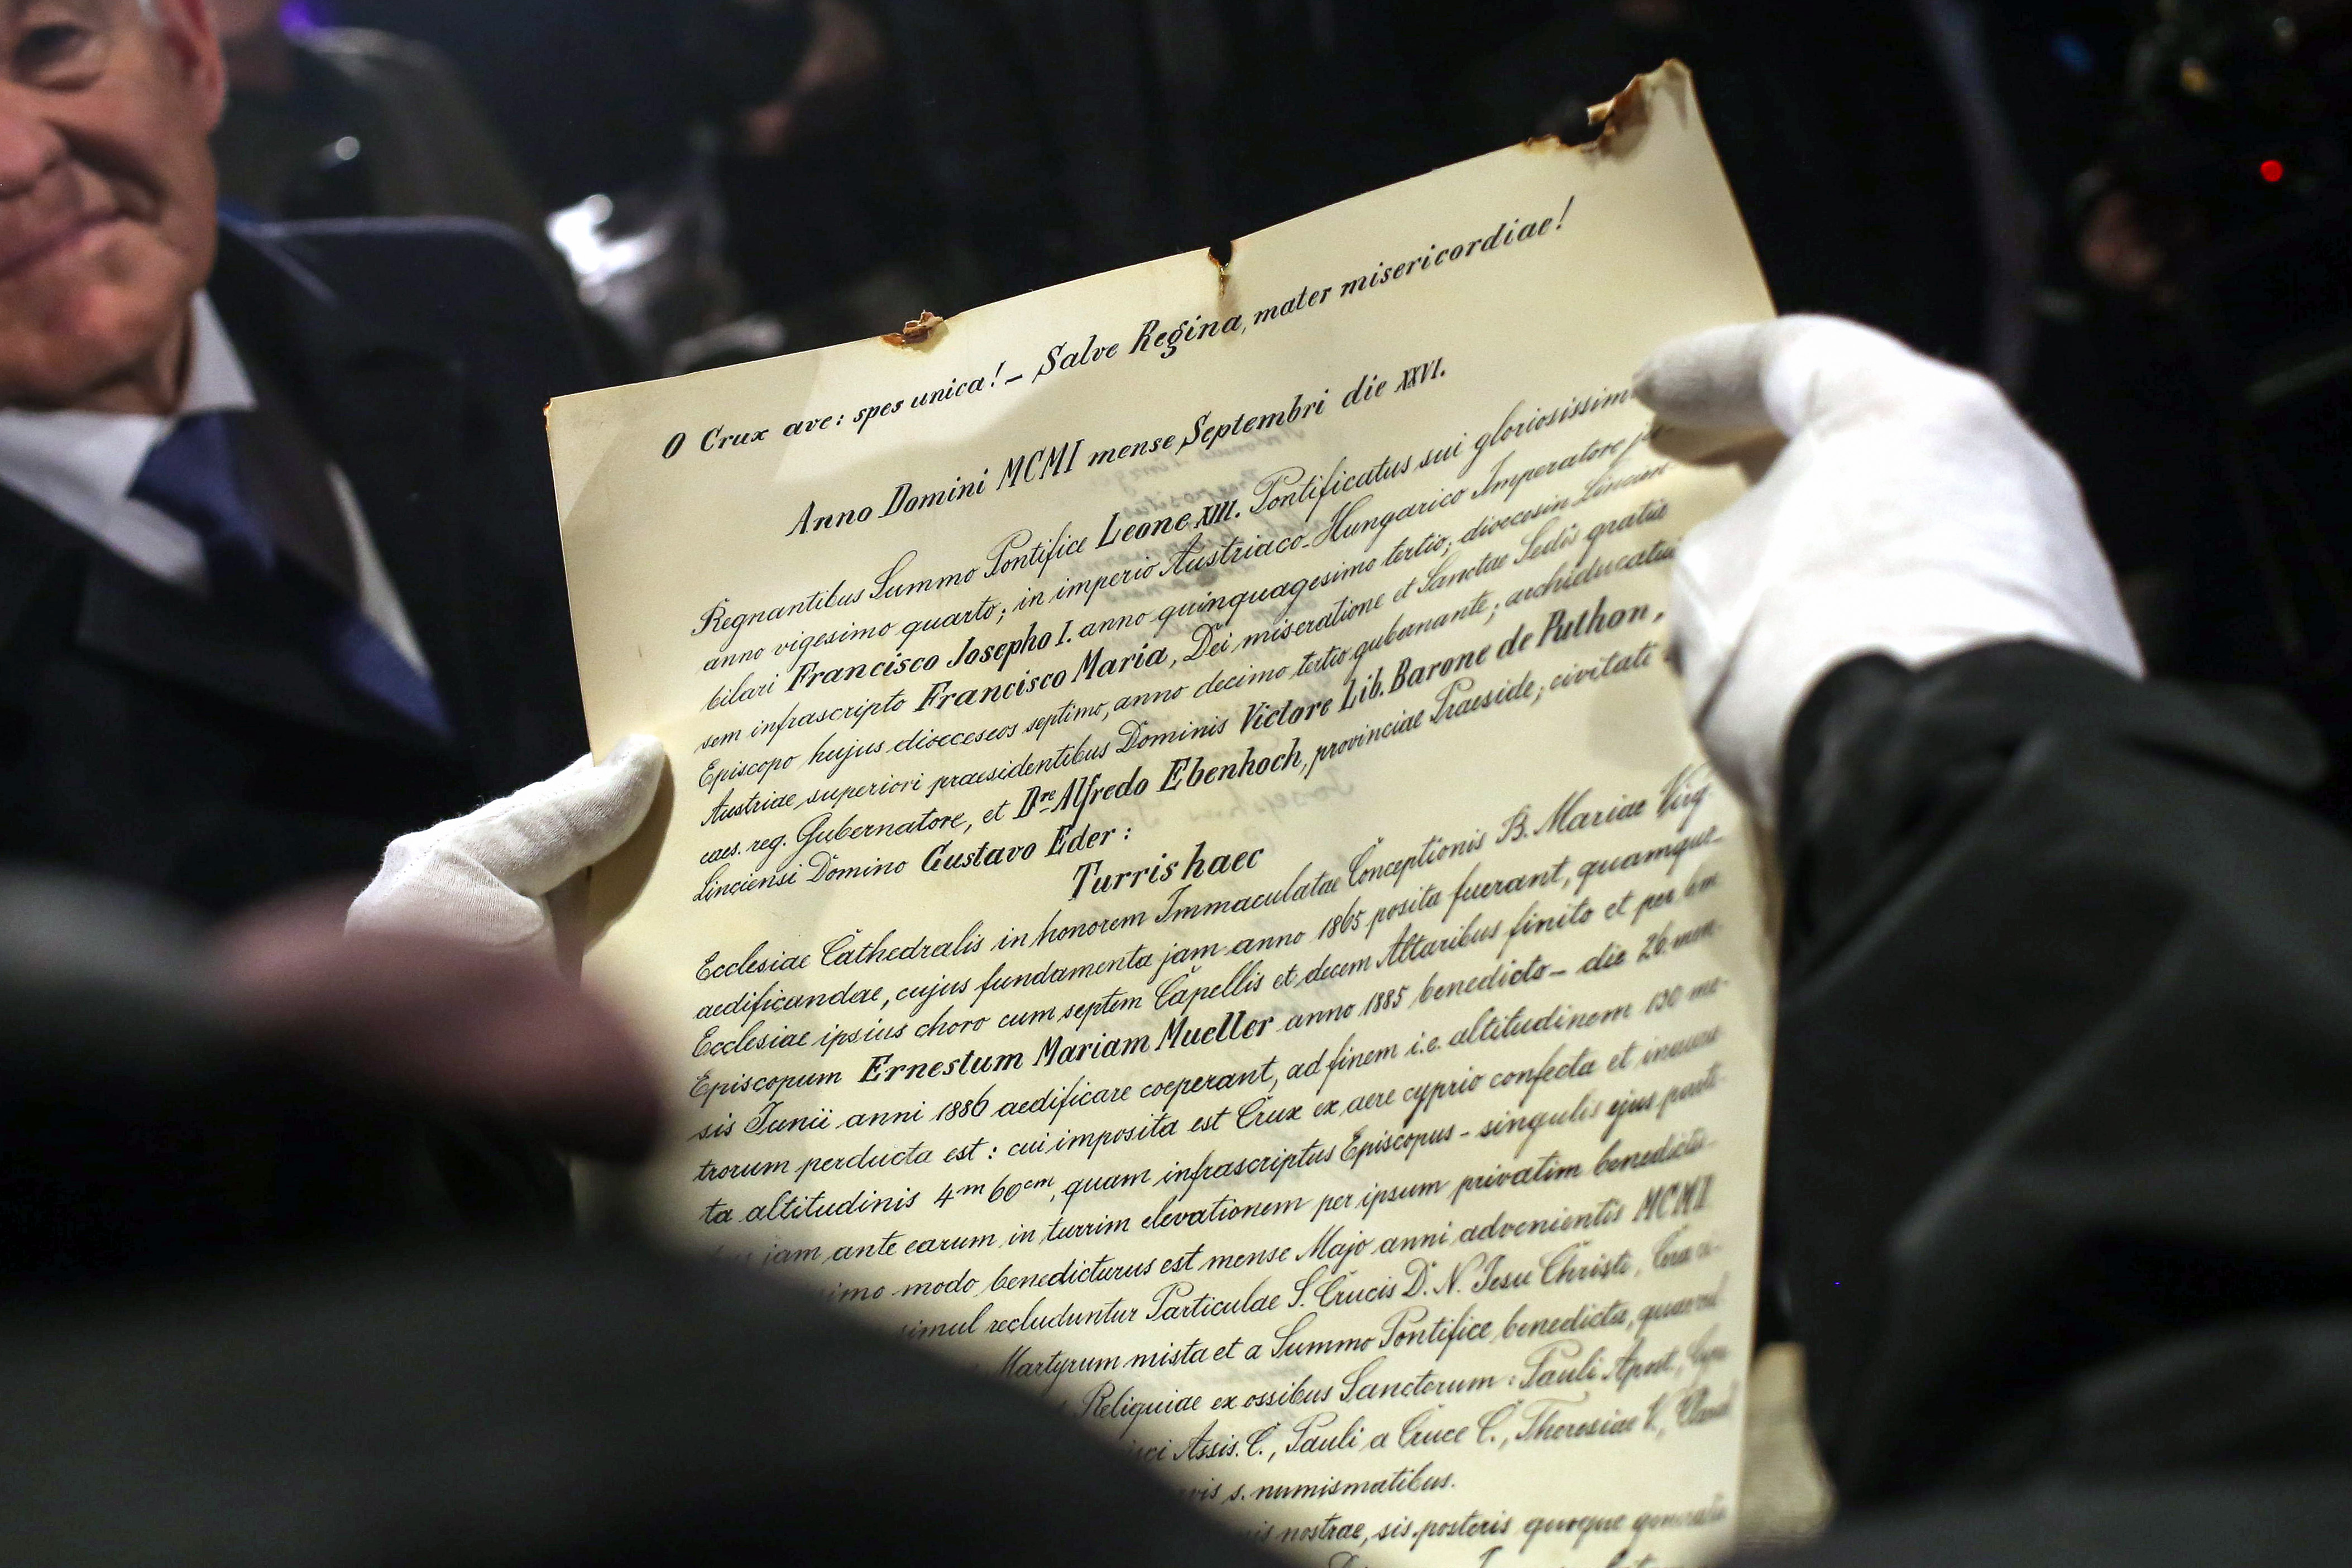 O Crux ave: spes unica! – Salve Regina, mater misericordiae!
Anno Domini MCMI mense Septembri die XXVI.
Regnantibus Summo Pontifice Leone XIII. Pontificatus sui gloriosissim
anno vigesimo quarto; in imperio Austriaco-Hungarico Imperatore
bilari Francisco Josepho I. anno quinquagesimo tertio; dioecesin Lincien
sem infrascripto Francisco Maria, Dei miseratione et Sanctae Sedis gratia
Episcopo hujus dioeceseos septimo, anno decimo tertio gubernante; archiducatui
Austriae superiori praesidentibus Dominis Victore Lib. Barone de Puthon,
caes. reg. Gubernatore, et Dre Alfredo Ebenhoch, provinciae Praeside; civitati
Linciensi Domino Gustavo Eder:
Turris haec
Ecclesiae Cathedralis in honorem Immaculatae Conceptionis B. Mariae Virg.
aedificandae, cujus fundamenta jam anno 1865 posita fuerant, quamque-
Ecclesiae ipsius choro cum septem Capellis et decem Altaribus finito et per
Episcopum Ernestum Mariam Mueller anno 1885 benedicto – die 26. men-
sis Junii anni 1886 aedificare coeperant, ad finem i.e. altitudinem 130 me-
trorum perducta est: cui imposita est Crux ex aere cyprio confecta et inaura
ta altitudinis 4m 60cm, quam infrascriptus Episcopus – singulis ejus parti-
jam ante earum in turrim elevationem per ipsum privatim benedictis-
imo modo benedicturus est mense Majo anni advenientis MCMII
simul recluduntur Particulae S. Crucis D. N. Jesu Christi,
Martyrum mista et a Summo Pontifice benedicta,
Reliquiae ex ossibus Sanctorum: Pauli Apost.,
Assis. C., Pauli a Cruce C., Theresiae V.,
s. numismatibus.
nostrae, sis posteris quoque